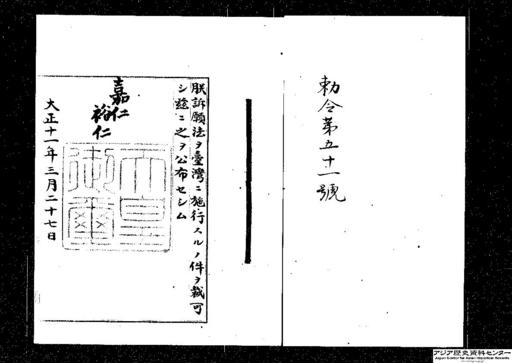 勅令第五十一號
朕訴願法ヲ臺灣ニ施行スルノ件ヲ裁可
シ茲ニ之ヲ公布セシム
嘉仁
裕仁
天皇御璽
大正十一年三月二十七日
アジア歴史資料センター
Japan Center for Asian Historical Records